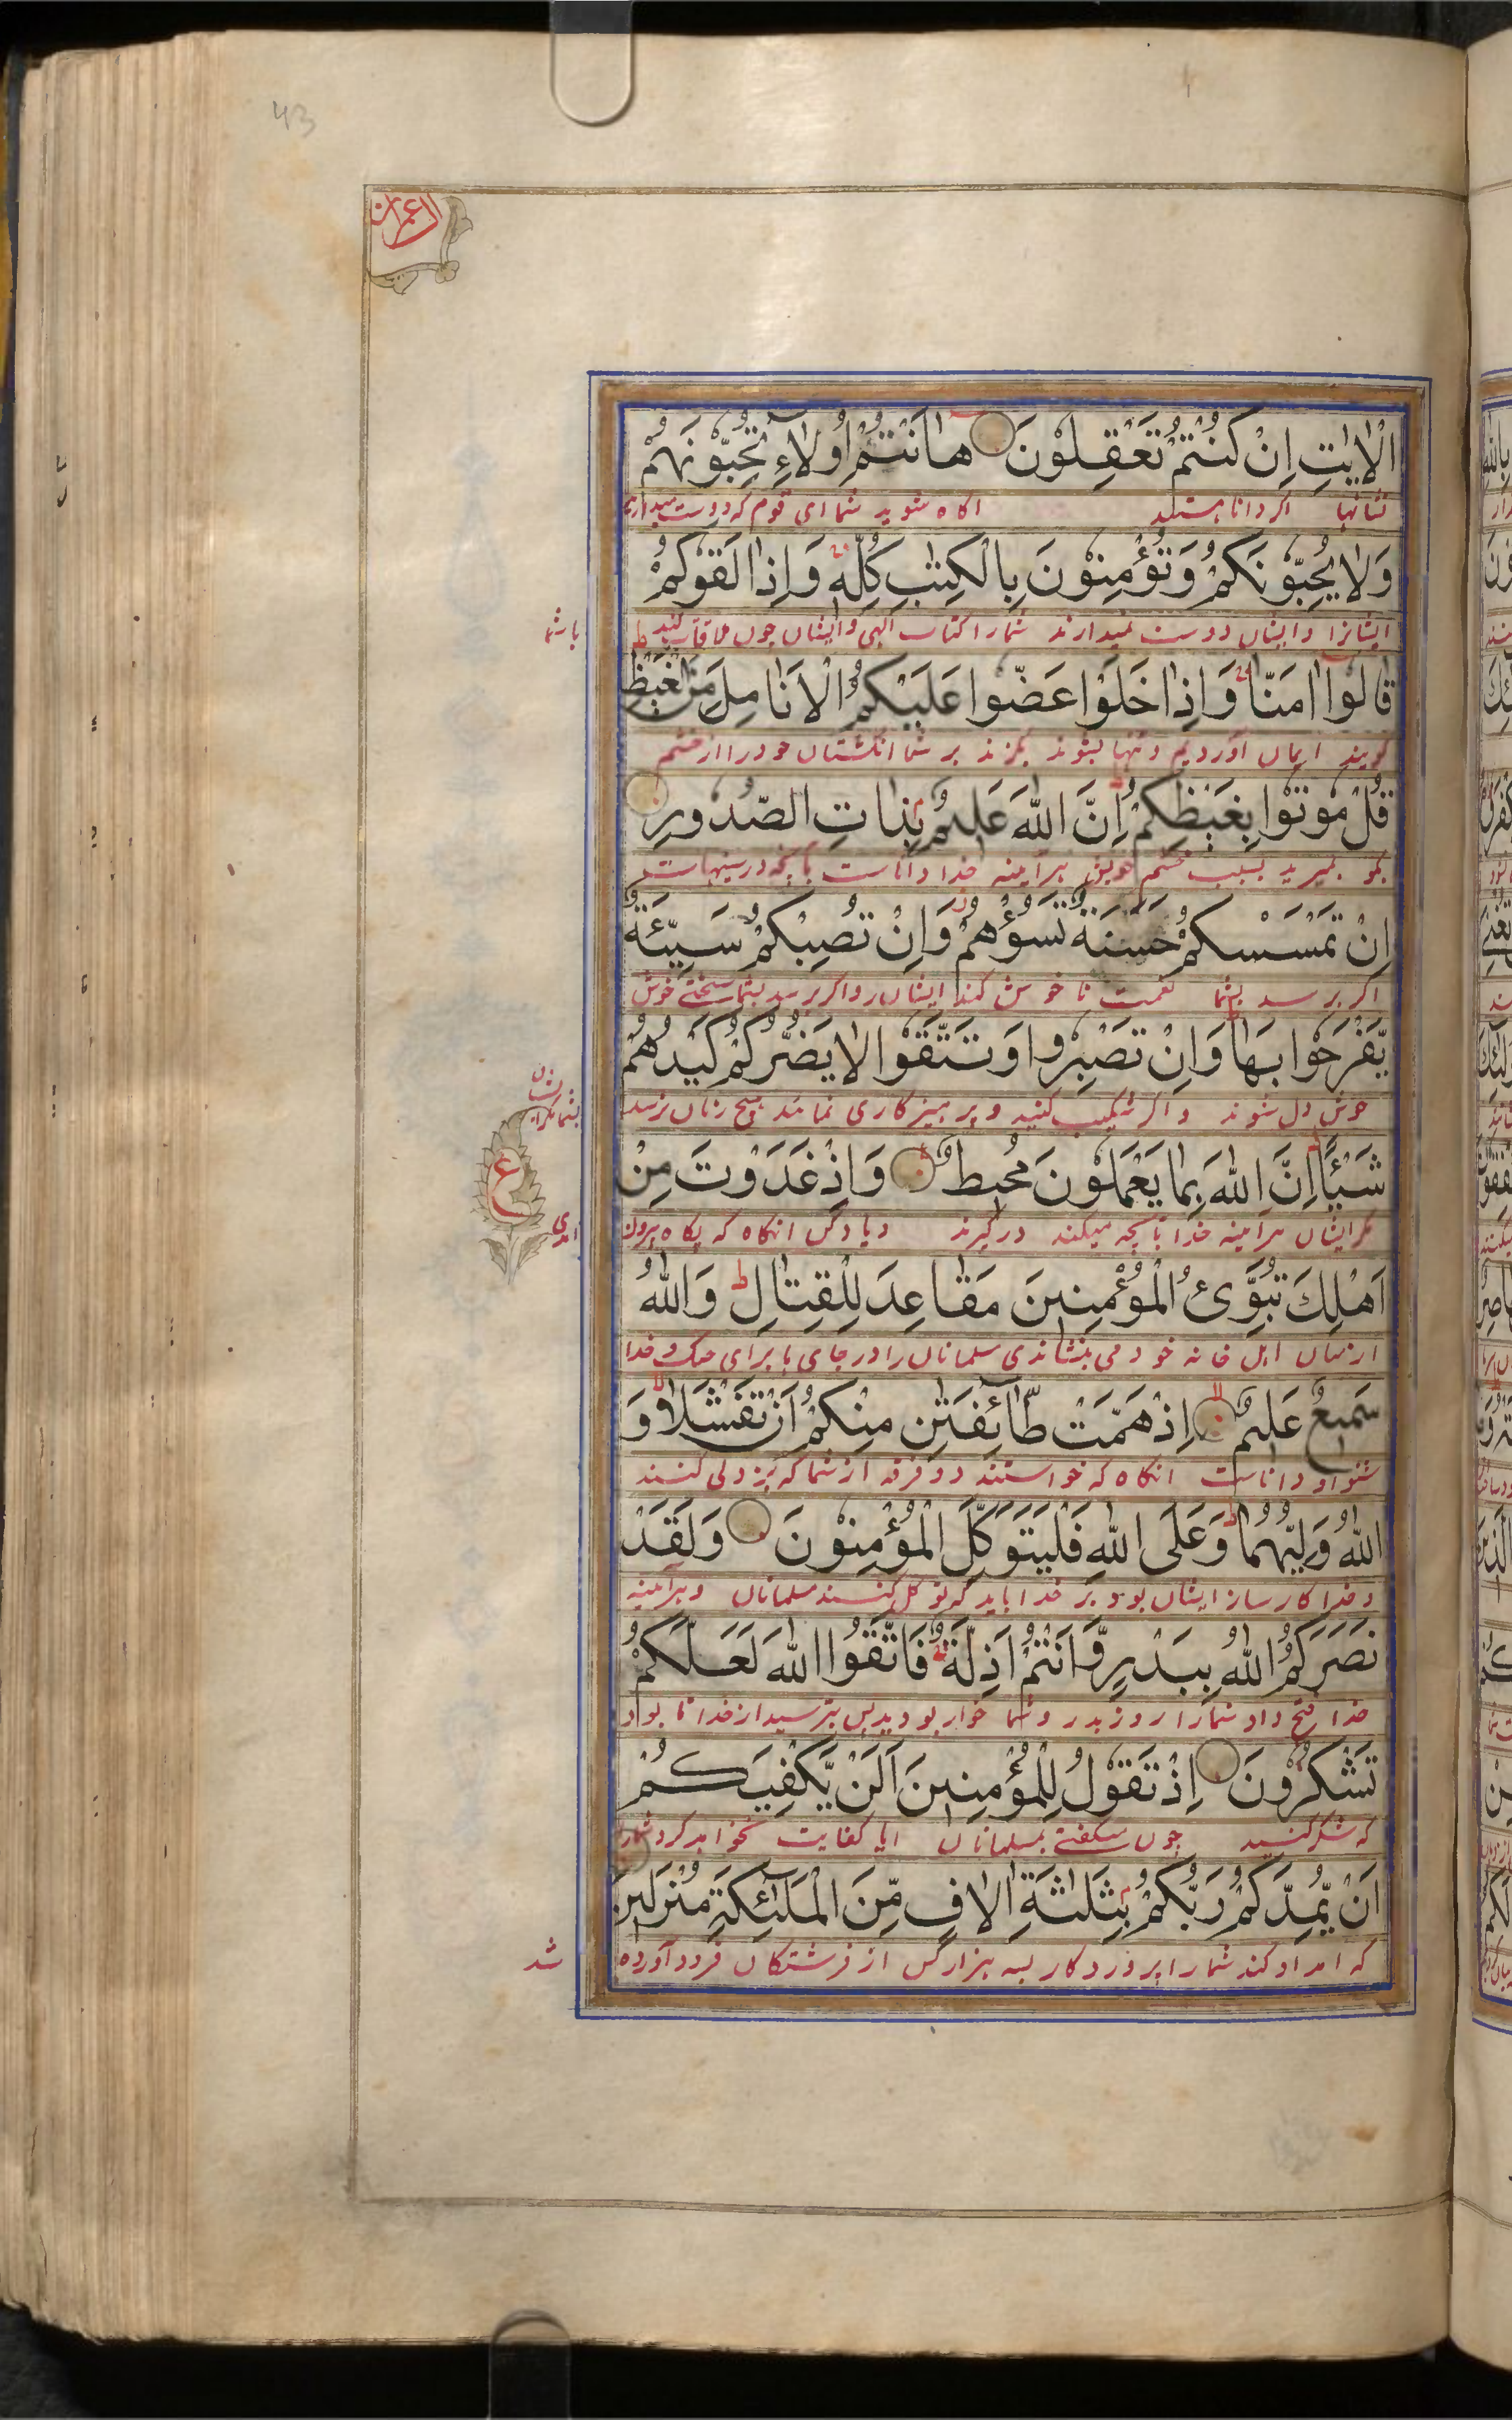 43
ال عمران
الْاٰيٰتِ اِنْ كُنْتُمْ تَعْقِلُوْنَ هٰاَنْتُمْ اُولَآءِ تُحِبُّوْنَهُمْ
نشانها اگر دانا هستید اگاه شوید شما ای قوم که دوست میدارید
وَلَا يُحِبُّوْنَكُمْ وَتُؤْمِنُوْنَ بِالْكِتٰبِ كُلِّهٖ وَاِذَا لَقُوْكُمْ
ایشانرا و ایشان دوست نمیدارند شمارا کتاب الهی و ایشان چون ملاقات کنند
با شما
قَالُوْا اٰمَنَّا وَاِذَا خَلَوْا عَضُّوْا عَلَيْكُمُ الْاَنَامِلَ مِنَ الْغَيْظِ
گویند ایمان آوردیم و تنها بشوند بگزند بر شما انگشتان خود را از خشم
قُلْ مُوْتُوْا بِغَيْظِكُمْ اِنَّ اللّٰهَ عَلِيْمٌ بِذَاتِ الصُّدُوْرِ
بگو بمیرید بسبب خشم خویش هرآینه خدا داناست بآنچه در سینهاست
اِنْ تَمْسَسْكُمْ حَسَنَةٌ تَسُؤْهُمْ وَاِنْ تُصِبْكُمْ سَيِّئَةٌ
اگر برسد بشما نعمت ناخوش کند ایشان را و اگر برسد بشما سختی خوش
يَّفْرَحُوْا بِهَا وَاِنْ تَصْبِرُوْا وَتَتَّقُوْا لَا يَضُرُّكُمْ كَيْدُهُمْ
خوش دل شوند و اگر شکیب کنید و پرهیزکاری نمائید هیچ زیان نرسد
شَيْئًا اِنَّ اللّٰهَ بِمَا يَعْمَلُوْنَ مُحِيْطٌ وَاِذْ غَدَوْتَ مِنْ
ع
مکر ایشان هرآینه خدا بآنچه میکنند درگیرند و یاد کن انگاه که پگاه بیرون
امدی
اَهْلِكَ تُبَوِّئُ الْمُؤْمِنِيْنَ مَقَاعِدَ لِلْقِتَالِ وَاللّٰهُ
از میان اهل خانه خود می بنشاندی مسلمانان را در جای ها برای جنگ و خدا
سَمِيْعٌ عَلِيْمٌ اِذْ هَمَّتْ طَّآئِفَتٰنِ مِنْكُمْ اَنْ تَفْشَلَا وَ
شنوا و داناست انگاه که خواستند دو فرقه از شما که بزدلی کنند
اللّٰهُ وَلِيُّهُمَا وَعَلَى اللّٰهِ فَلْيَتَوَكَّلِ الْمُؤْمِنُوْنَ وَلَقَدْ
و خدا کارساز ایشان بود و بر خدا باید که توکل کنند مسلمانان و هرآینه
نَصَرَكُمُ اللّٰهُ بِبَدْرٍ وَّاَنْتُمْ اَذِلَّةٌ فَاتَّقُوا اللّٰهَ لَعَلَّكُمْ
خدا فتح داد شمارا روز بدر و شما خوار بودید پس بترسید از خدا تا بود
تَشْكُرُوْنَ اِذْ تَقُوْلُ لِلْمُؤْمِنِيْنَ اَلَنْ يَّكْفِيَكُمْ
که شکر کنید چون میگفتی بمسلمانان ایا کفایت نخواهد کرد شمارا
اَنْ يُّمِدَّكُمْ رَبُّكُمْ بِثَلٰثَةِ اٰلَافٍ مِّنَ الْمَلٰٓئِكَةِ مُنْزَلِيْنَ
که امداد کند شمارا پروردکار بسه هزار کس از فرشتکان فرود آورده
شد